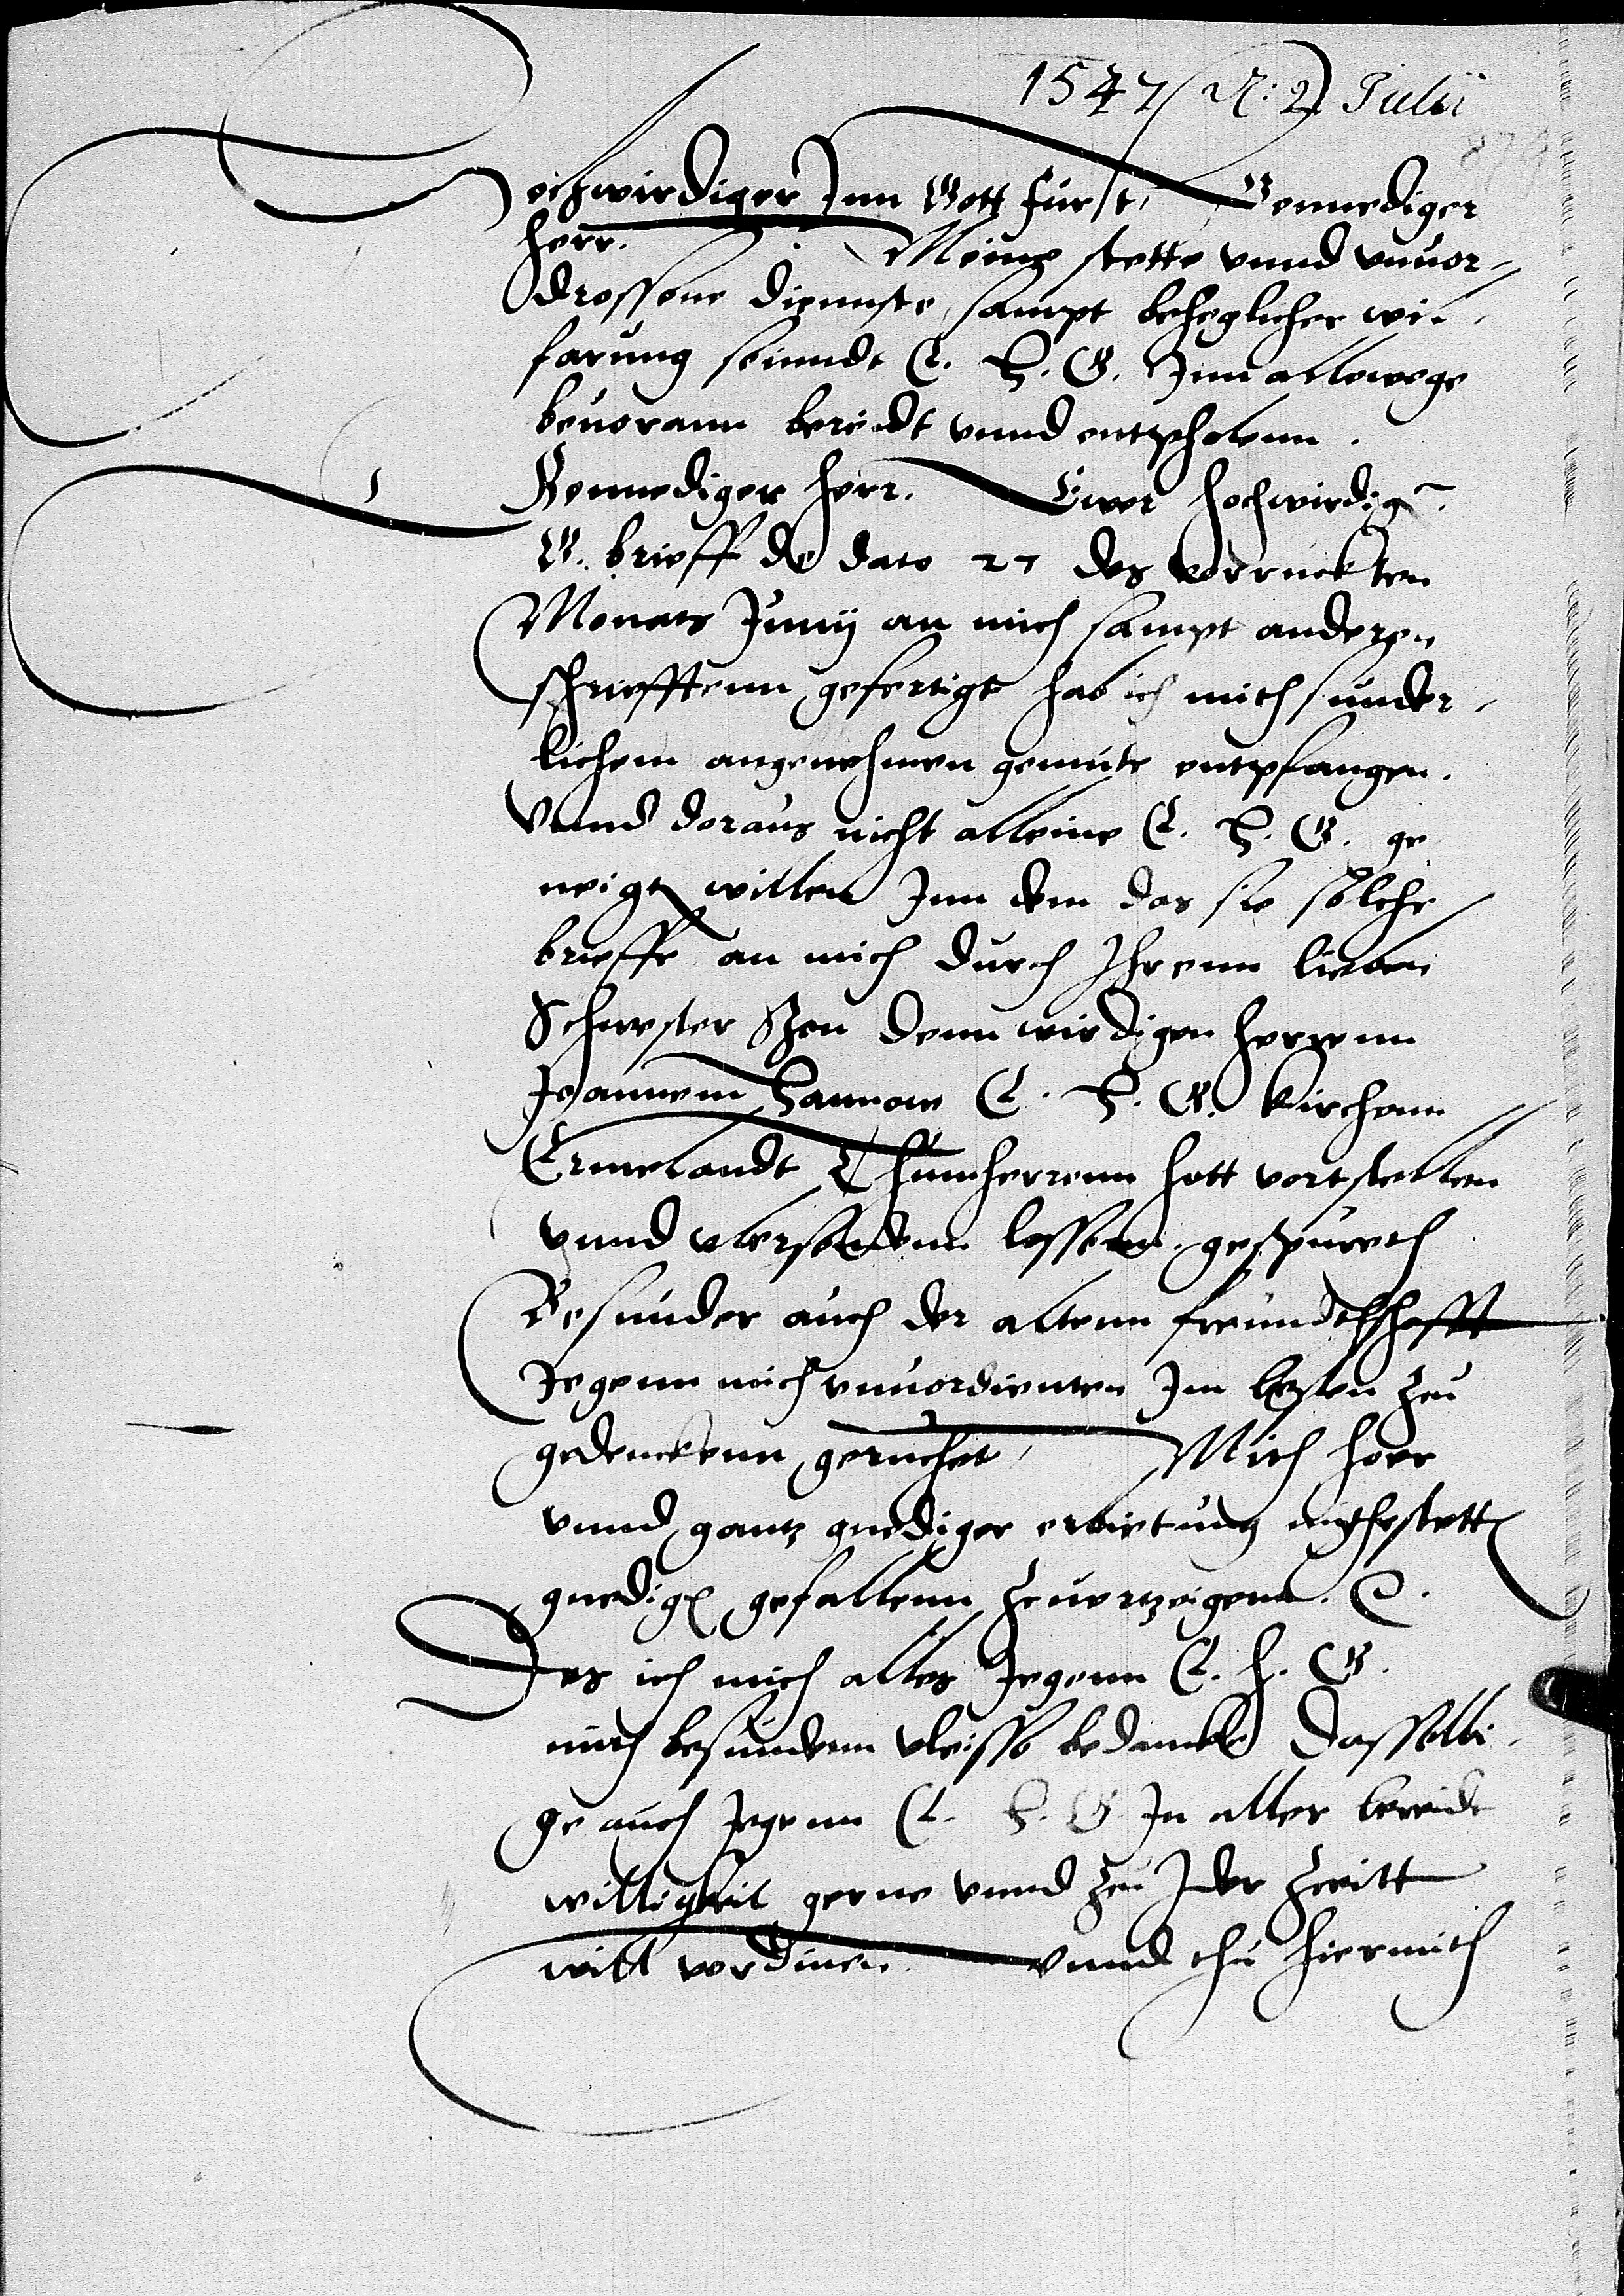 1547 (N: 2) Julii
879
Hochwirdiger Inn Gott furst, Gennediger
herr. Meine stette vnnd vnuor-
drossene diennste sampt beheglicher wil-
farung seinndt E. H. G. Inn allewege
beuorann bereidt vnnd entpholenn.
Gennediger herr. Ewer hochwirdige
G. brieff de dato 27 des vorruckten
Monats Junij an mich sampt anderen
schriefftenn gefertigt hab ich mith sunder-
lichem angenehmen gemute entpfangen.
Vnnd doraus nicht alleine E. H. G. ge
neigtt willen Inn dem das sie solche
brieffe an mich durch Ihrenn lieben
Schwester Szon denn wirdigen herrenn
Joannem Hannow E. H. G. kirchenn
Ermelandt Thumherrenn hott vortstellen
vnnd vbersendenn lossenn gespureth
Besunder auch der altenn freundthschafft
Jegenn mich vnuordienten Im besten zcu
gedenckenn geruchet, Mith hoer
vnnd gantz gnediger erbietung
gnedigs gefallenn zcuertzeigenn. E.
Des ich mich alles Jegenn E. h. G.
mith besundernn vleisse bedancke Dasselbi-
ge auch Jegenn E. H. G. In aller bereidt
willigkeit gerne vnnd zcu Jder zceitt
will vordinen. vnnd thu hiermith